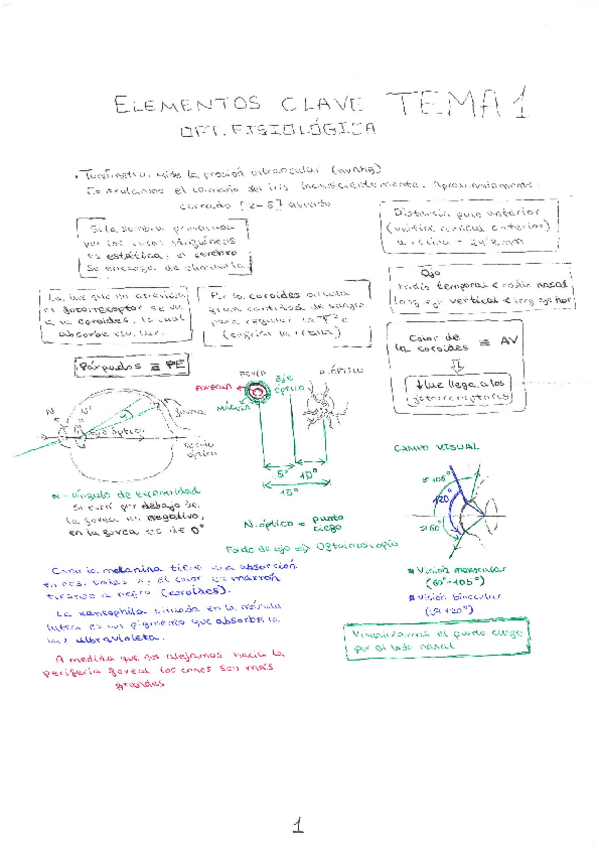 ELEMENTOS CLAVE TEMA 1
OPT. FISIOLÓGICA
mide la presión intraocular (mmHg)
el tamaño del iris inconscientemente. Aproximadamente:
cerrado [2-8] abierto
Si la sombra provocada
por los vasos sanguíneos
es estática, el cerebro
se encarga de eliminarla
Distancia polo anterior
(vértice corneal anterior)
a retina =
Ojo
radio temporal < radio nasal
long eje vertical < long eje hor.
La luz que no atraviesa
el fotorreceptor se va
a la coroides, la cual
absorbe esa luz.
Por la coroides circula
gran cantidad de sangre
para regular la Tª
Color de
la coroides ≡ AV
luz llega a los
fotorreceptores
Párpados ≡ PE
FOVEA
FOVEOLA
MÁCULA
eje
óptico
N. ÓPTICO
N N'
eje óptico
fovea
nervio
óptico
5°
10°
15°
CAMPO VISUAL
≈105°
120°
≈60°
ángulo de excentricidad
Si está por debajo de
la fovea es negativo,
en la fovea es de 0°
N. óptico = punto
ciego
Fondo de ojo ⇒ Oftalmoscopio
Visión monocular
(60°-105°)
Visión binocular
(≈120°)
Como la melanina tiene una absorción
el color es marrón
tirando a negro (coroides).
La xantophila situada en la mácula
lútea es un pigmento que absorbe la
luz ultravioleta.
Visualizamos el punto ciego
por el lado nasal
A medida que nos alejamos hacia la
periferia foveal los conos son más
grandes
1